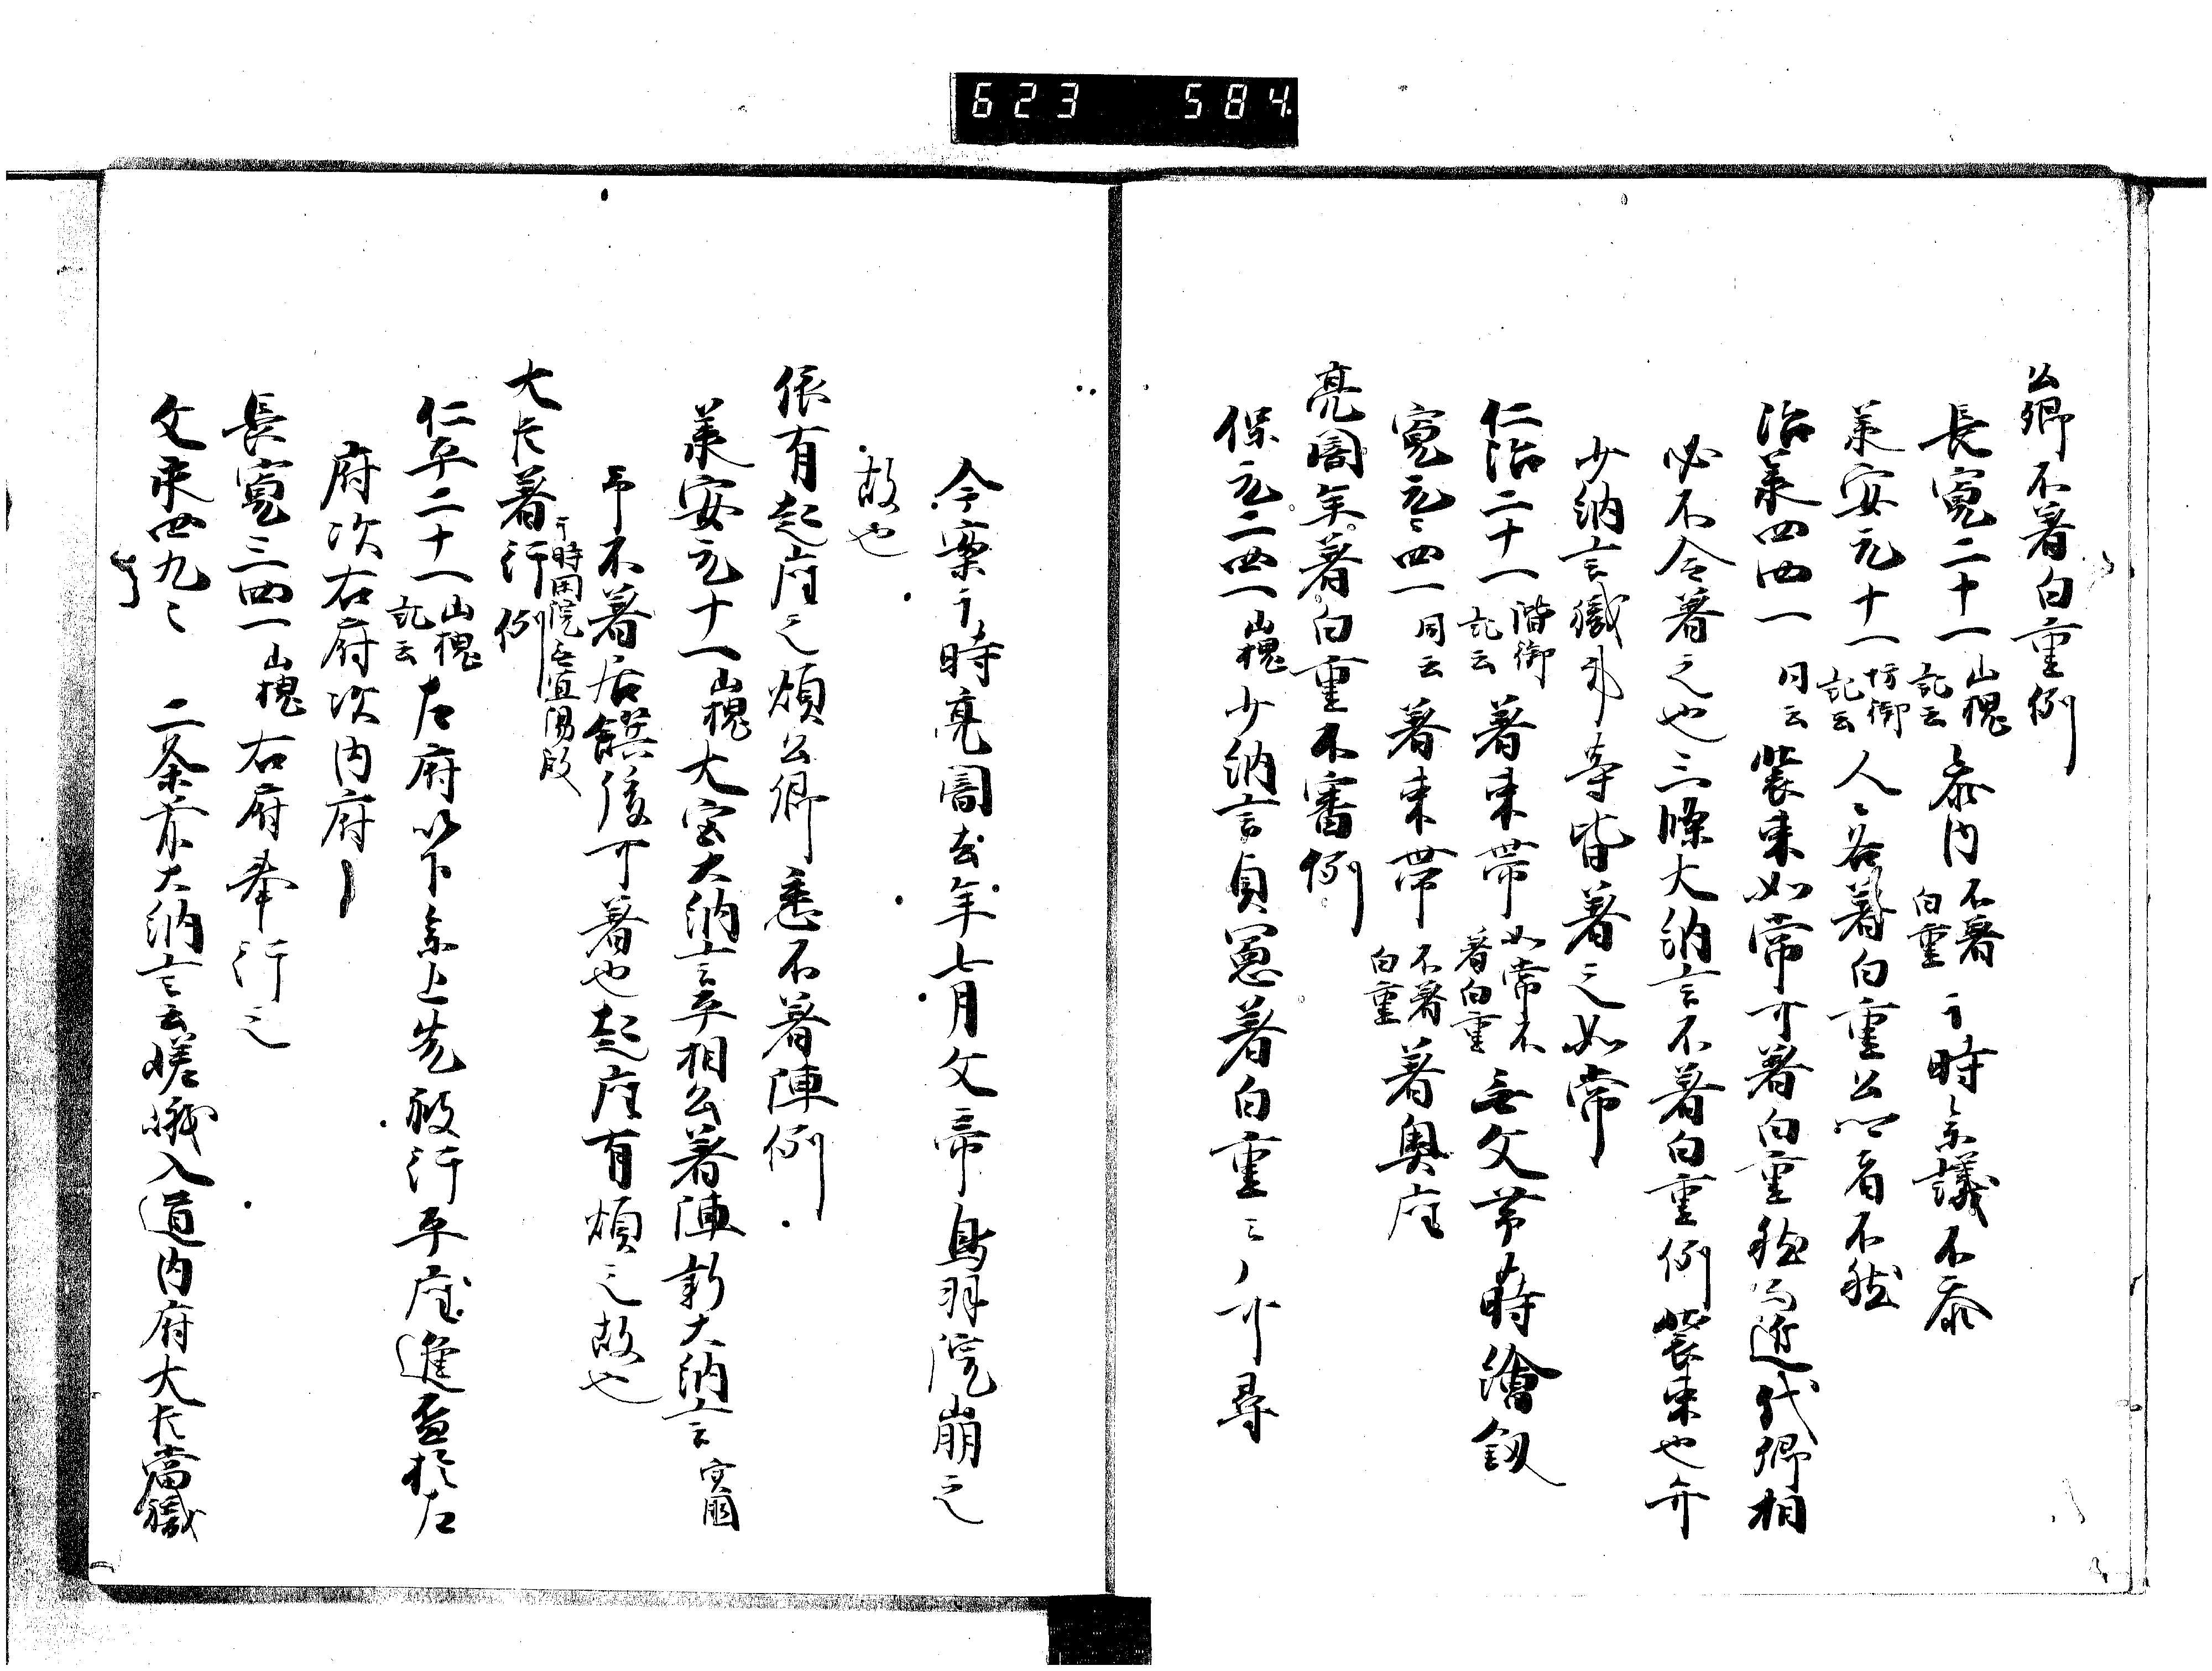 623 584
公卿不著白重例
長寛二十一山槐記云参内不著白重于時参議不参
承安元十一坊御記云人々各著白重公以者不然
治承四四一同云装束如常可著白重極而近代卿相
必不令著之也三條大納言不著白重例装束也弁
少納言職事等皆著之如常
仁治二十一階御記云著束帯如常不著白重无文帯蒔繪釼
寛元々四一同云著束帯不著白重著奥座
亮闇年著白重不審例
保元二四一山槐少納言貞憲著白重云々可尋
今案于時亮闇去年七月父帝鳥羽院崩之
故也
依有起座之煩公卿悉不著陣例
承安元十一山槐大宮大納言平相公著陣新大納言実國
予不著居饌後可著也起座有煩之故也
大臣著行例于時閑院無宜陽殿
仁平二十一山槐記云左府以下参上先被行平座進盃於左
府次右府次内府
長寛三四一山槐右府奉行之
文永四九々 二条前大納言云嵯峨入道内府大臣當職